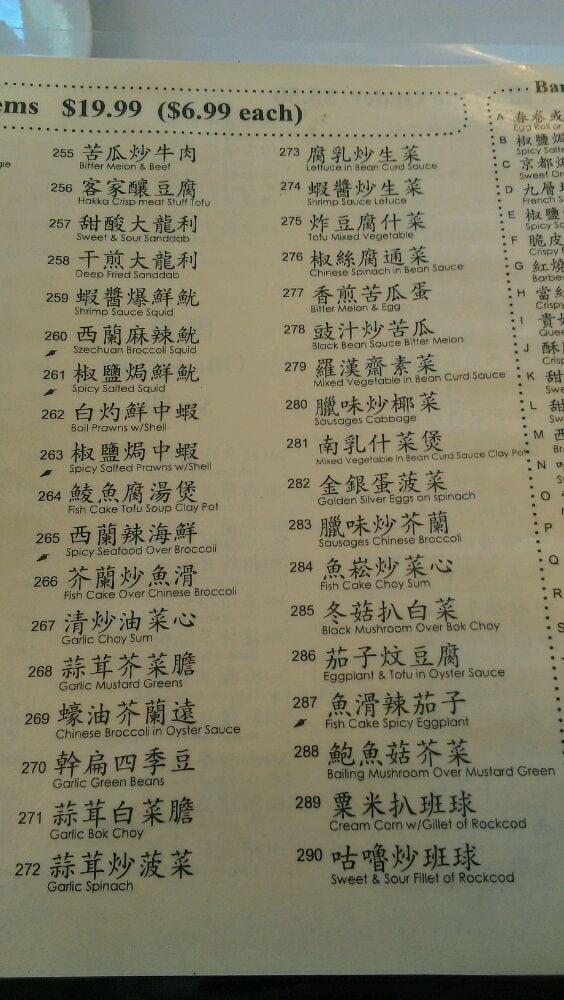 ems $19.99 ($6.99 each)
gie
255 苦瓜炒牛肉
Bitter Melon & Beef
256 客家釀豆腐
Hakka Crisp meat Stuff Tofu
257 甜酸大龍利
Sweet & Sour Sanddab
258 干煎大龍利
Deep Fried Sanddab
259 蝦醬爆鮮魷
Shrimp Sauce Squid
260 西蘭麻辣魷
Szechuan Broccoli Squid
261 椒鹽焗鮮魷
Spicy Salted Squid
262 白灼鮮中蝦
Boil Prawns w/Shell
263 椒鹽焗中蝦
Spicy Salted Prawns w/Shell
264 鯪魚腐湯煲
Fish Cake Tofu Soup Clay Pot
265 西蘭辣海鮮
Spicy Seafood Over Broccoli
266 芥蘭炒魚滑
Fish Cake Over Chinese Broccoli
267 清炒油菜心
Garlic Choy Sum
268 蒜茸芥菜膽
Garlic Mustard Greens
269 蠔油芥蘭遠
Chinese Broccoli in Oyster Sauce
270 幹扁四季豆
Garlic Green Beans
271 蒜茸白菜膽
Garlic Bok Choy
272 蒜茸炒菠菜
Garlic Spinach
273 腐乳炒生菜
Lettuce in Bean Curd Sauce
274 蝦醬炒生菜
Shrimp Sauce Letuce
275 炸豆腐什菜
Tofu Mixed Vegetable
276 椒絲腐通菜
Chinese Spinach in Bean Sauce
277 香煎苦瓜蛋
Bitter Melon & Egg
278 豉汁炒苦瓜
Black Bean Sauce Bitter Melon
279 羅漢齋素菜
Mixed Vegetable in Bean Curd Sauce
280 臘味炒椰菜
Sausages Cabbage
281 南乳什菜煲
Mixed Vegetable in Bean Curd Sauce Clay Pot
282 金銀蛋菠菜
Golden Silver Eggs on spinach
283 臘味炒芥蘭
Sausages Chinese Broccoli
284 魚崧炒菜心
Fish Cake Choy Sum
285 冬菇扒白菜
Black Mushroom Over Bok Choy
286 茄子炆豆腐
Eggplant & Tofu in Oyster Sauce
287 魚滑辣茄子
Fish Cake Spicy Eggplant
288 鮑魚菇芥菜
Bailing Mushroom Over Mustard Green
289 粟米扒班球
Cream Corn w/Gillet of Rockcod
290 咕嚕炒班球
Sweet & Sour Fillet of Rockcod
Ban
A 春卷或
Egg Roll or
B 椒鹽焗
Spicy Salte
C 京都
Sweet On
D 九層
French S
E 椒鹽
Spicy Sa
F 脆皮
Crispy
G 紅燒
Barbe
H 當紅
Crispy
I 貴
Quee
J 酥
Crisp
K 甜
Sw
L 甜
Sw
M 西
Br
N
O
P
Q
R
S